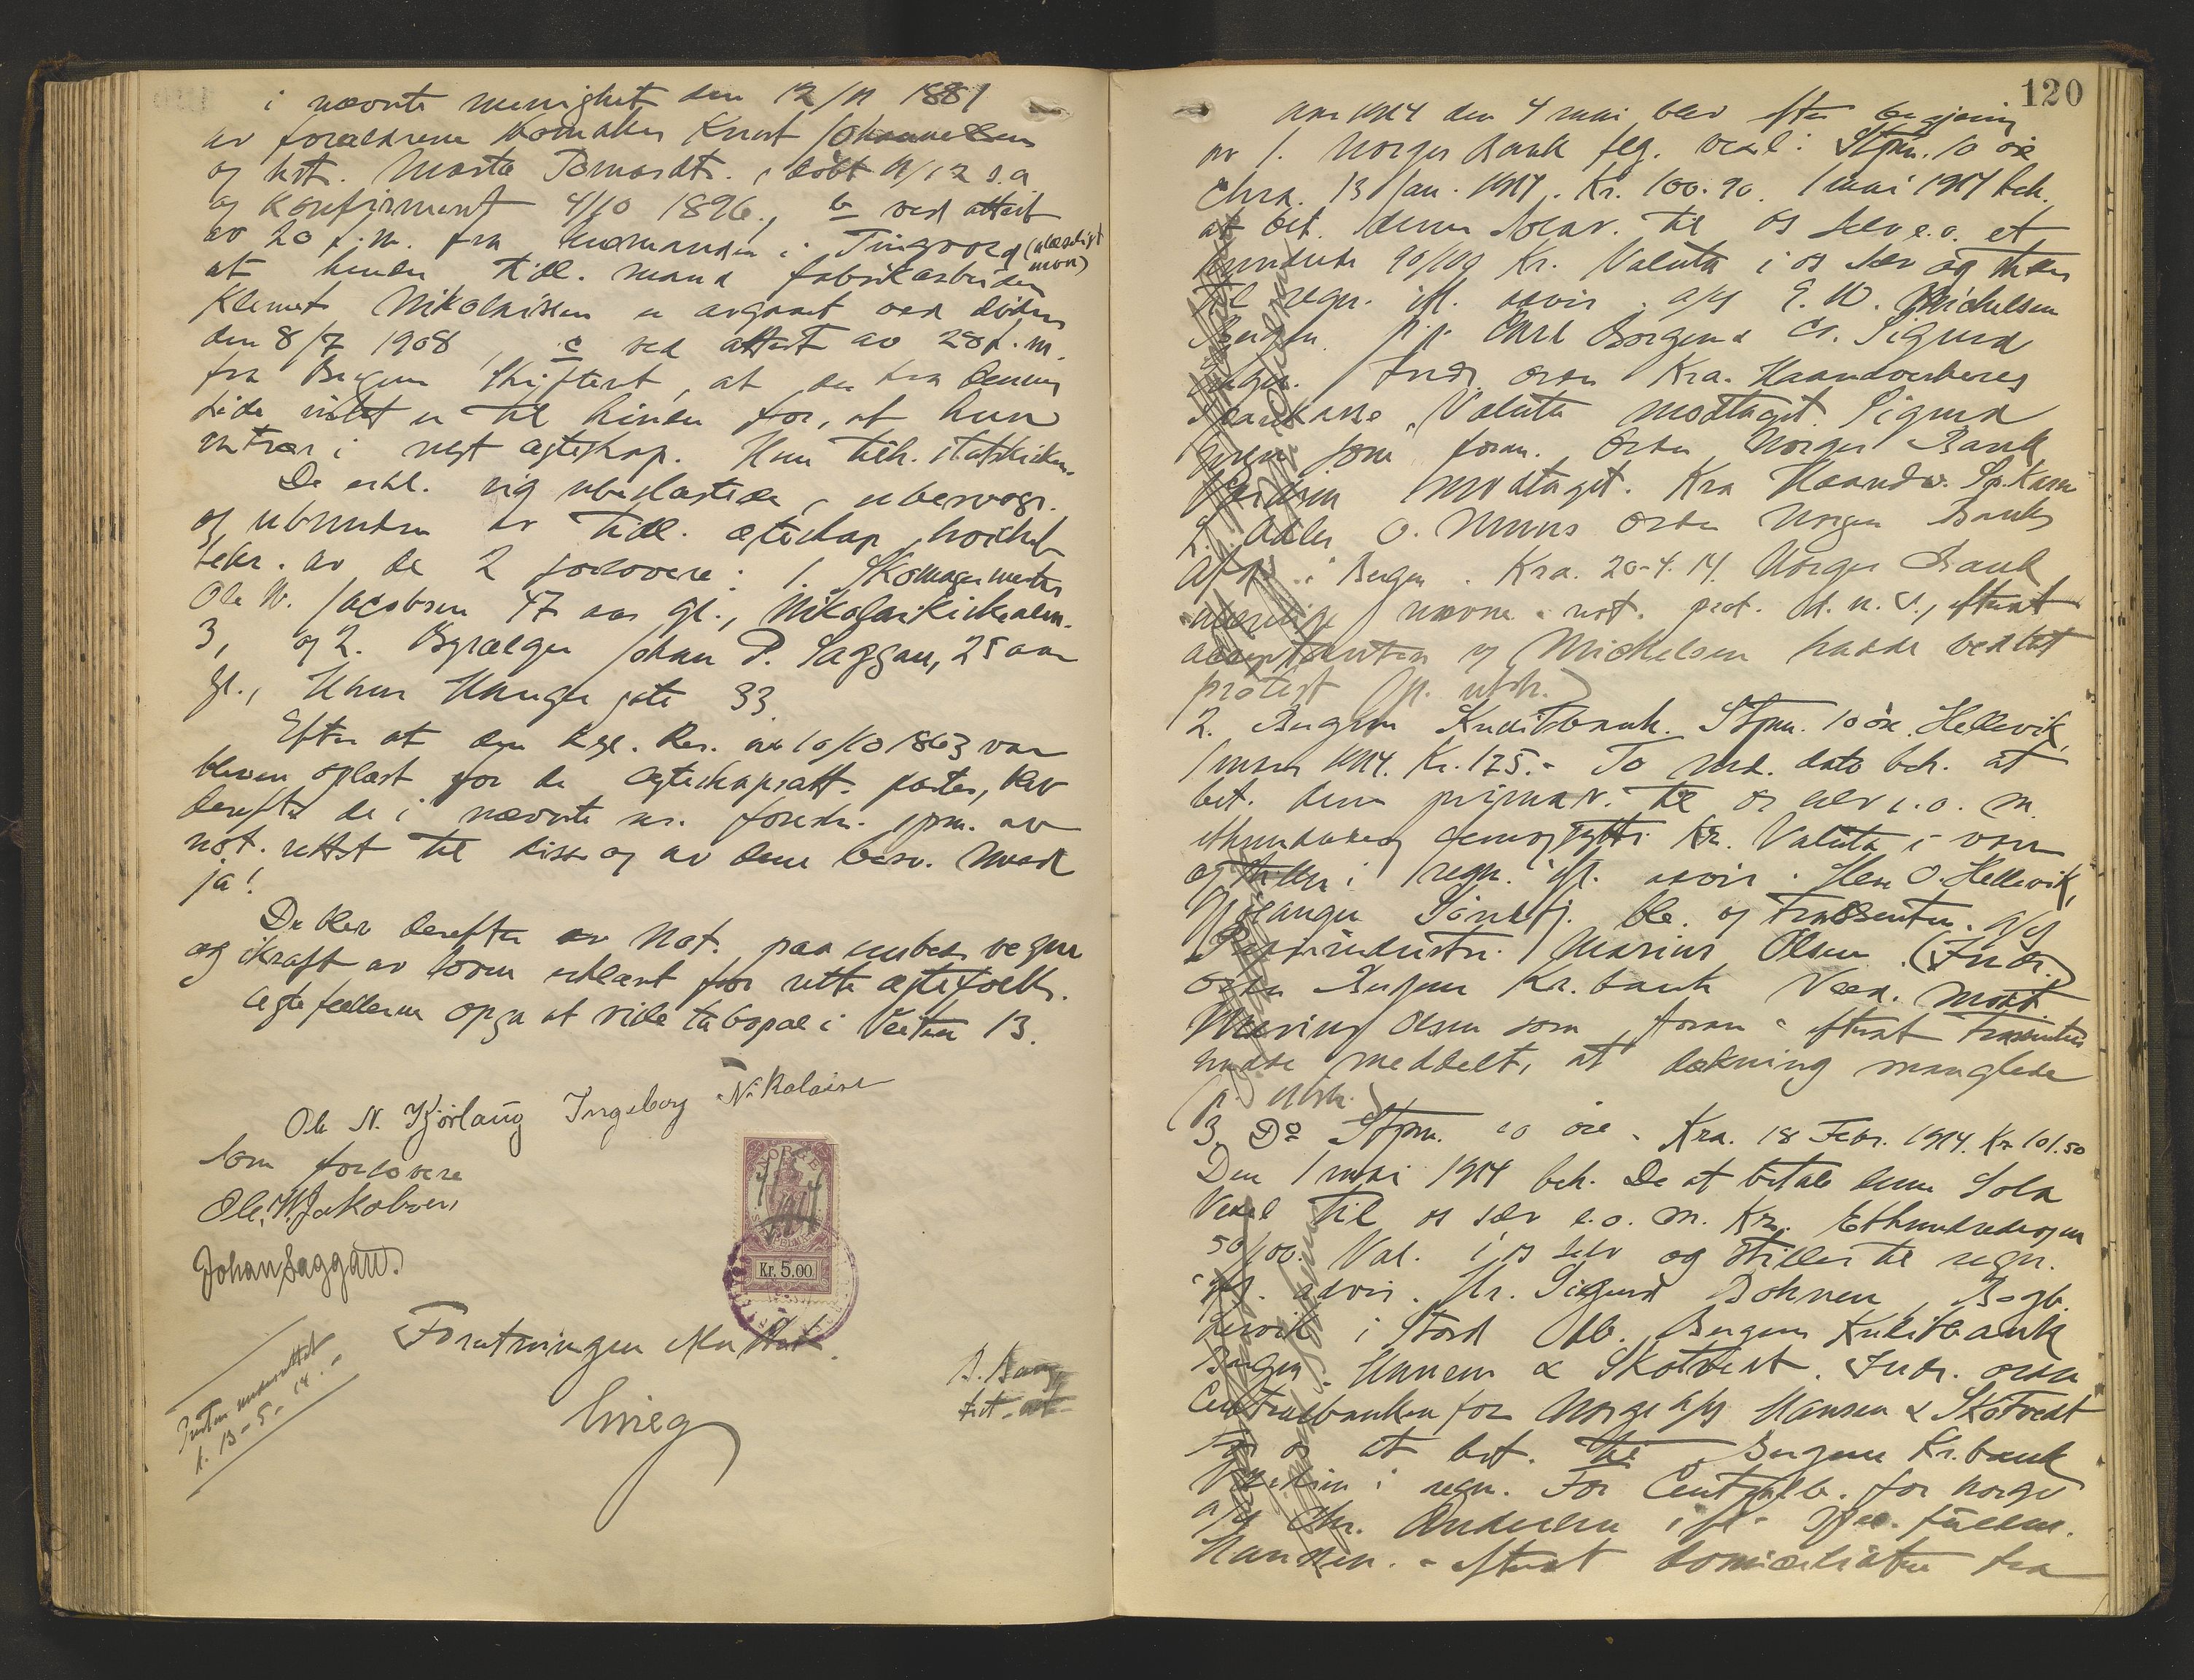 i nævnte menighet den 12/11 1881
av forældrene Knut Johannesen
og hst. Marta Berntsdt. døbt 11/12 s.a
og konfirmeret 4/10 1896., b ved attest
av 20 f.m. fra i Tingvoll (ulæseligt
navn)
at hendes tidl. mand fabrikarbeider
Klemet Nikolaisen er avgaaet ved døden
den 8/7 1908, c ved attest av 28 f.m.
fra Bergens Skifteret, at der fra dennes
side intet er til hinder for, at hun
indtrær i nyt egteskap. Hun tilh. statskirken.
De erkl. sig ubeslægtede, ubesvogr.
og ubundne av tidl. egteskap, hvilket
bekr. av de 2 forlovere: 1. Skomagermester
Ole W. Jacobsen 47 aar gl., Nikolaikirkealm.
3, og 2. Johan P. Saggau, 25 aar
gl., Hans Hauges gate 33.
Efter at den kgl. Res. av 10/10 1863 var
bleven oplæst for de egteskapsatt. parter, blev
derefter de i nævnte res. foreskr. spm. av
not. rettet til disse og av dem besv. med
ja!
De blev derefter av Not. paa embeds vegne
og ikraft av loven erklært for rette egtefolk.
Egtefællerne opga at ville ta bopæl i Veiten 13.
Ole N. Kjörlaug Ingeborg Nikolaisen
Som forlovere
Ole. W. Jakobsen
Johan Saggau.
NORGE
4/5
1914
STEMPELMERKE
Kr. 5.00
Forretningen sluttet.
Grieg
B. Bang
fist. at
Presten underrettet
d. 13-5-14.
120
Aar 1914 den 4 mai blev efter begjæring
av 1. Norges Bank flg. vexel: Stpm. 10 øre
Chra. 13 Jan. 1914. Kr. 100.90. 1 mai 1914 beh.
at bet. denne Solav. til os selv e.o. et
hundrede 90/100 Kr. Valuta i os selv og stilles
til regn. ifl. advis. a/s E. W. Michelsen
Bergen. p.p. Carl Borgen & Co. Sigurd
Indr. ordre Kra. Haandverkeres
Sparekasse. Valuta modtaget. Sigurd
som foran. Ordre Norges Bank
Værdien modtaget. Kra Haandv. Sp.kasse
Adler O. Munns Ordre Norges Bank
Afd. i Bergen. Kra. 20-4.14. Norges Bank
ulæselige navne. not. prot. efterat
acceptanten Michelsen hadde vedtat
protest (p. utsk.)
2. Bergens Kreditbank. Stpm. 10 øre. Hellevik,
1 mars 1914. Kr. 125.- To md. dato beh. at
bet. denne primav. til os selv e.o. m.
ethundrede og femogtyve Kr. Valuta i varer
og stilles i regn. ifl. advis. Herr O. Hellevik,
Søndfj. bl. og trassenten. a/s
Marius Olsen. (Indr.)
Ordre Bergens Kr.bank Værd. modt.
Marius Olsen som foran - efterat trassenten
hadde meddelt, at dækning manglede
(p. utsk.)
3. Do Stpm. 10 øre - Kra. 18 Febr. 1914. Kr 101.50
Den 1 mai 1914 beh. De at betale denne Sola
Vexel til os selv e.o. m. Kr. Ethundrede og en
50/100. Val. i os selv og stilles til regn.
ifl. advis. Hr. Sigurd Bohnen, Bogb.
Lervik i Stord Obl. Bergens Kreditbank
Bergen. Hansen & Skotvedt. Indr. ordre
Centralbanken for Norge a/s Hansen & Skotvedt
For os at bet. til Bergens Kr.bank
Værdien i regn. For Centralb. for Norge
a/s Chr. Andersen ifl. Spec. fuldm.
Hansen. - efterat domiciliaten fra